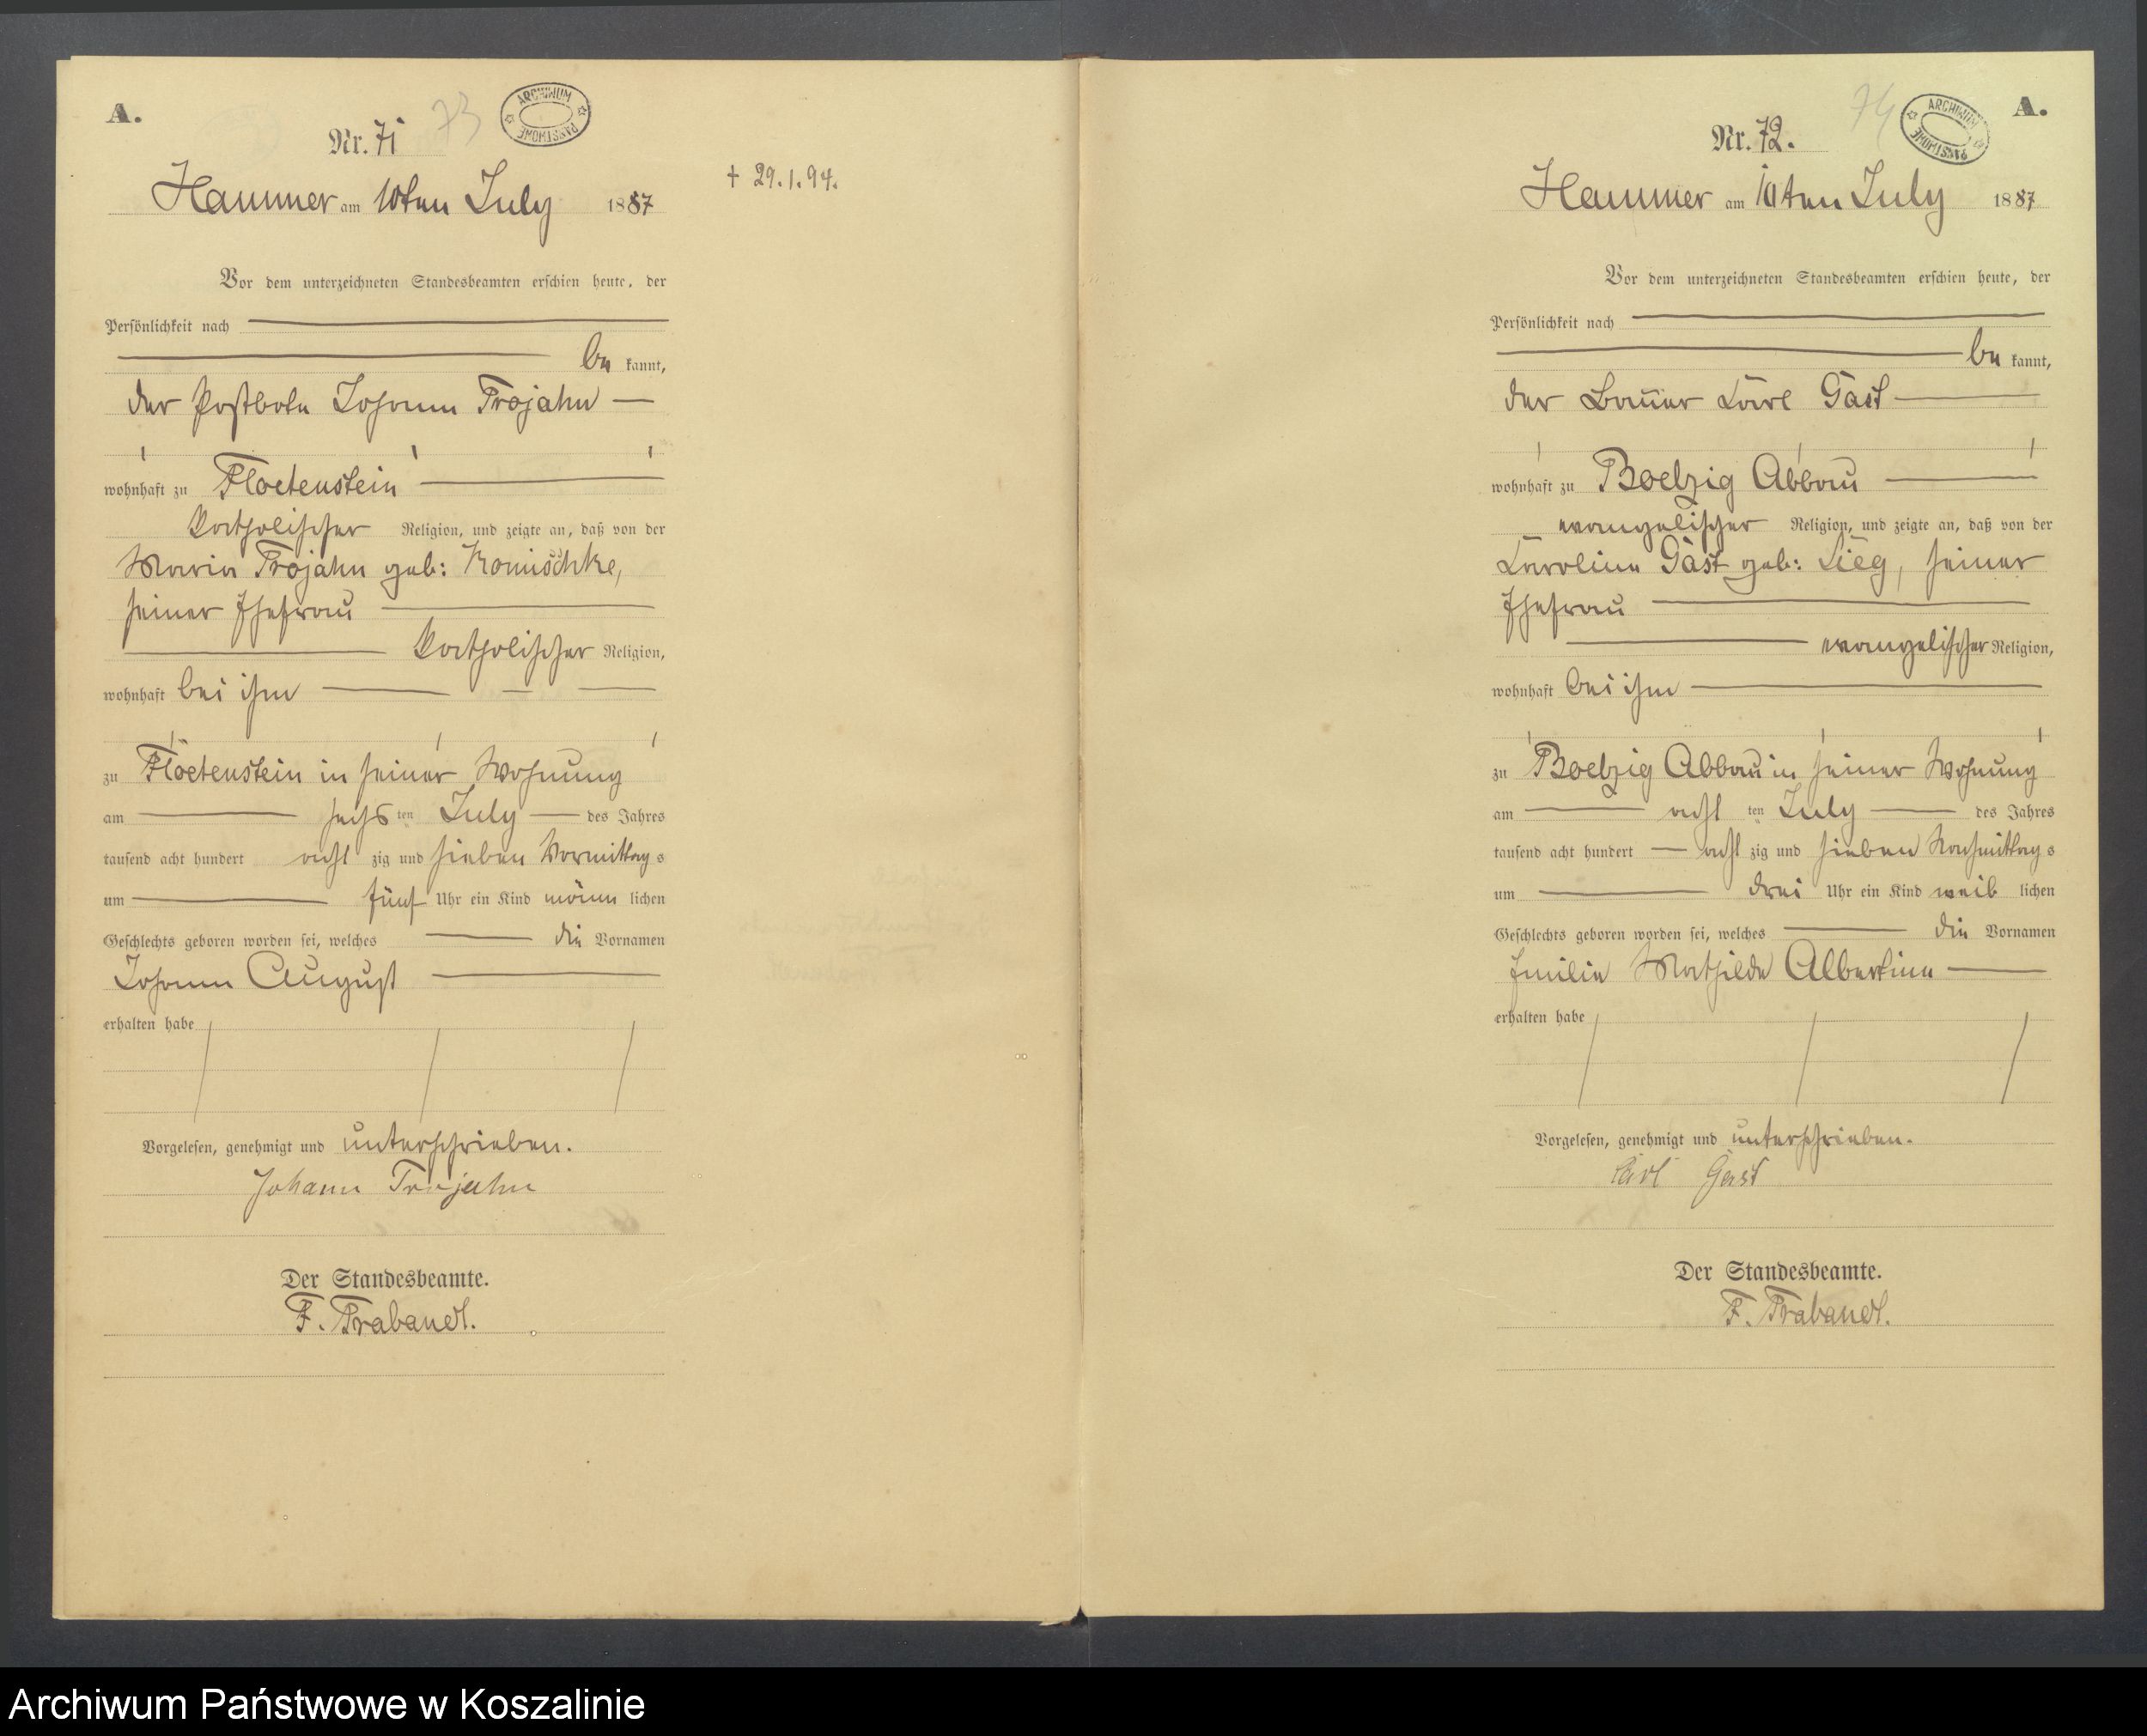 A.
Nr. 71
73
ARCHIWUM PAŃSTWOWE
† 29.1.94.
Hammer am 10ten July 1887
Vor dem unterzeichneten Standesbeamten erschien heute, der
Persönlichkeit nach
be kannt,
der Postbote Johann Trojahn
wohnhaft zu Floetenstein
katholischer Religion, und zeigte an, daß von der
Maria Trojahn geb:
seiner Ehefrau
katholischer Religion,
wohnhaft bei ihm
zu Floetenstein in seiner Wohnung
am sechs ten July des Jahres
tausend acht hundert acht zig und sieben Vormittag s
um fünf Uhr ein Kind männ lichen
Geschlechts geboren worden sei, welches die Vornamen
Johann August
erhalten habe
Vorgelesen, genehmigt und unterschrieben.
Johann Trojahn
Der Standesbeamte.
F. Prabandt.
A.
Nr. 72.
74
ARCHIWUM PAŃSTWOWE
Hammer am 10ten July 1887
Vor dem unterzeichneten Standesbeamten erschien heute, der
Persönlichkeit nach
be kannt,
der Bauer Carl Gast
wohnhaft zu Boelzig Abbau
evangelischer Religion, und zeigte an, daß von der
Caroline Gast geb: Sieg, seiner
Ehefrau
evangelischer Religion,
wohnhaft bei ihm
zu Boelzig Abbau in seiner Wohnung
am acht ten July des Jahres
tausend acht hundert acht zig und sieben Nachmittag s
um drei Uhr ein Kind weib lichen
Geschlechts geboren worden sei, welches die Vornamen
Emilie Mathilde Albertine
erhalten habe
Vorgelesen, genehmigt und unterschrieben.
Carl Gast
Der Standesbeamte.
F. Prabandt.
Archiwum Państwowe w Koszalinie